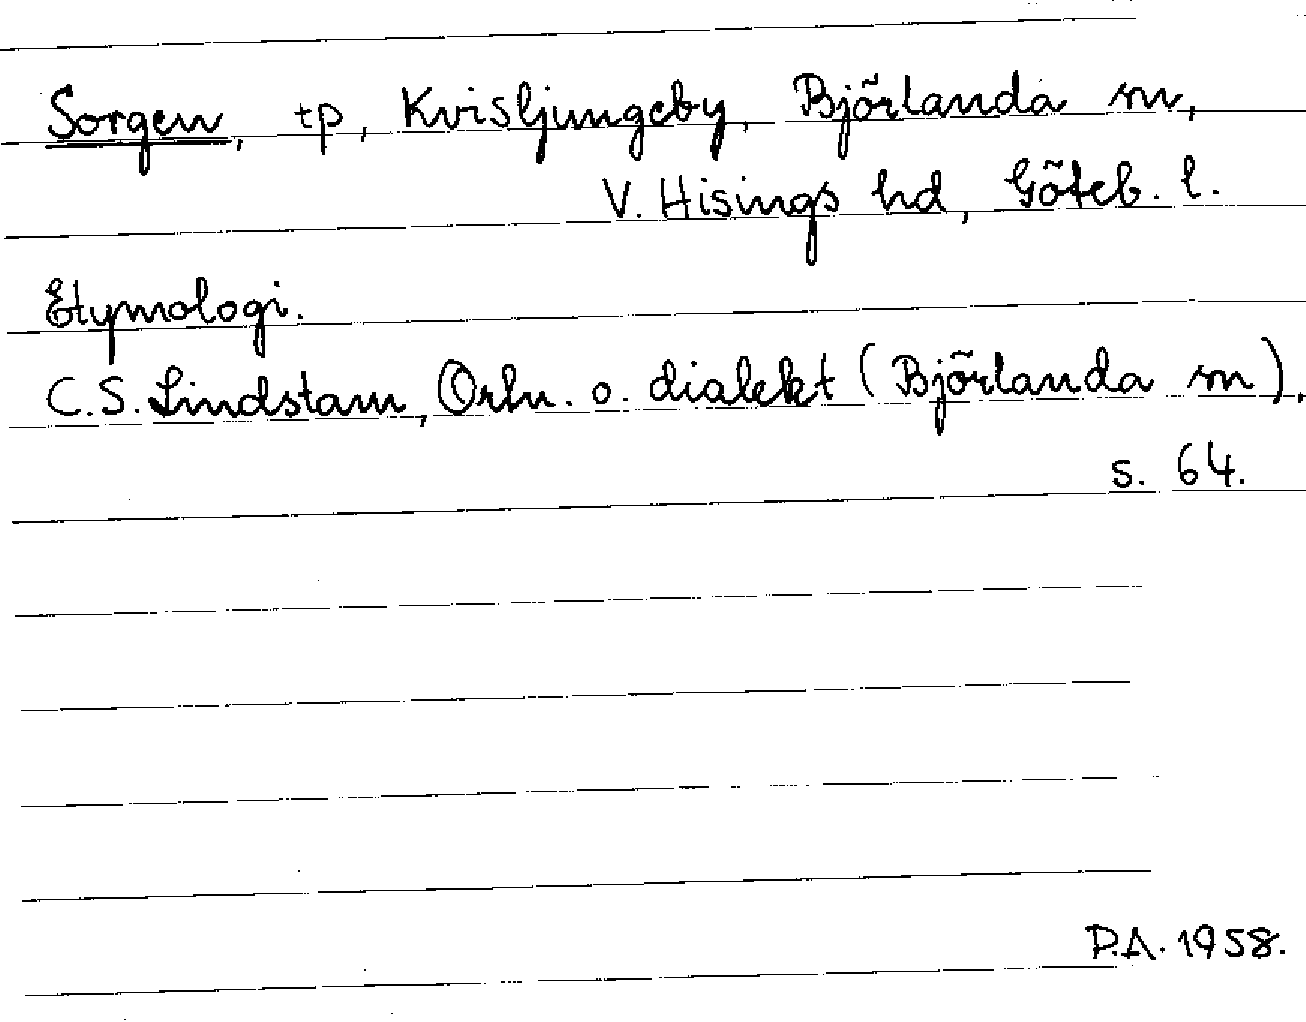 Sorgen, tp, Kvisljungeby, Björlanda sn,
V. Hisings hd, Göteb. l.
Etymologi.
C.S. Lindstam, Ortn. o. dialekt (Björlanda sn),
s. 64.
P.A. 1958.